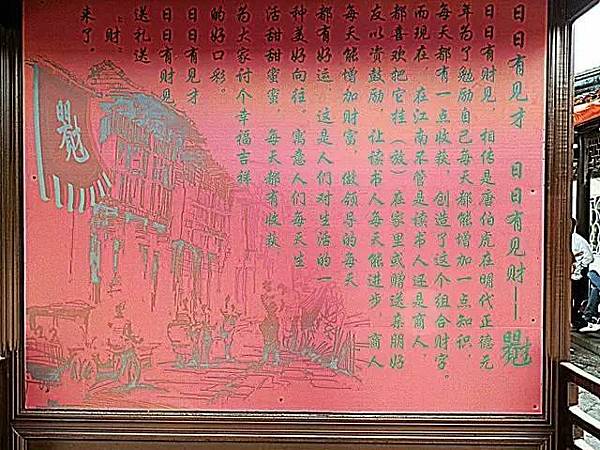 日日有见才 日日有见财——
日日有财见 相传是唐伯虎在明代正德元
年为了勉励自己每天都能增加一点知识,
每天都有一点收获,创造了这个组合财字。
而现在,在江南不管是读书人还是商人,
都喜欢把它挂(放)在家里或赠送亲朋好
友以资鼓励 让读书人每天能进步,商人
每天能增加财富,做领导的每天
都有好运,这是人们对生活的一
种美好向往。寓意人们每天生
活甜甜蜜蜜 每天都有收获
为大家讨个幸福吉祥
的好口彩。
日日有见才
日日有财见
送礼送
"财"
来了。